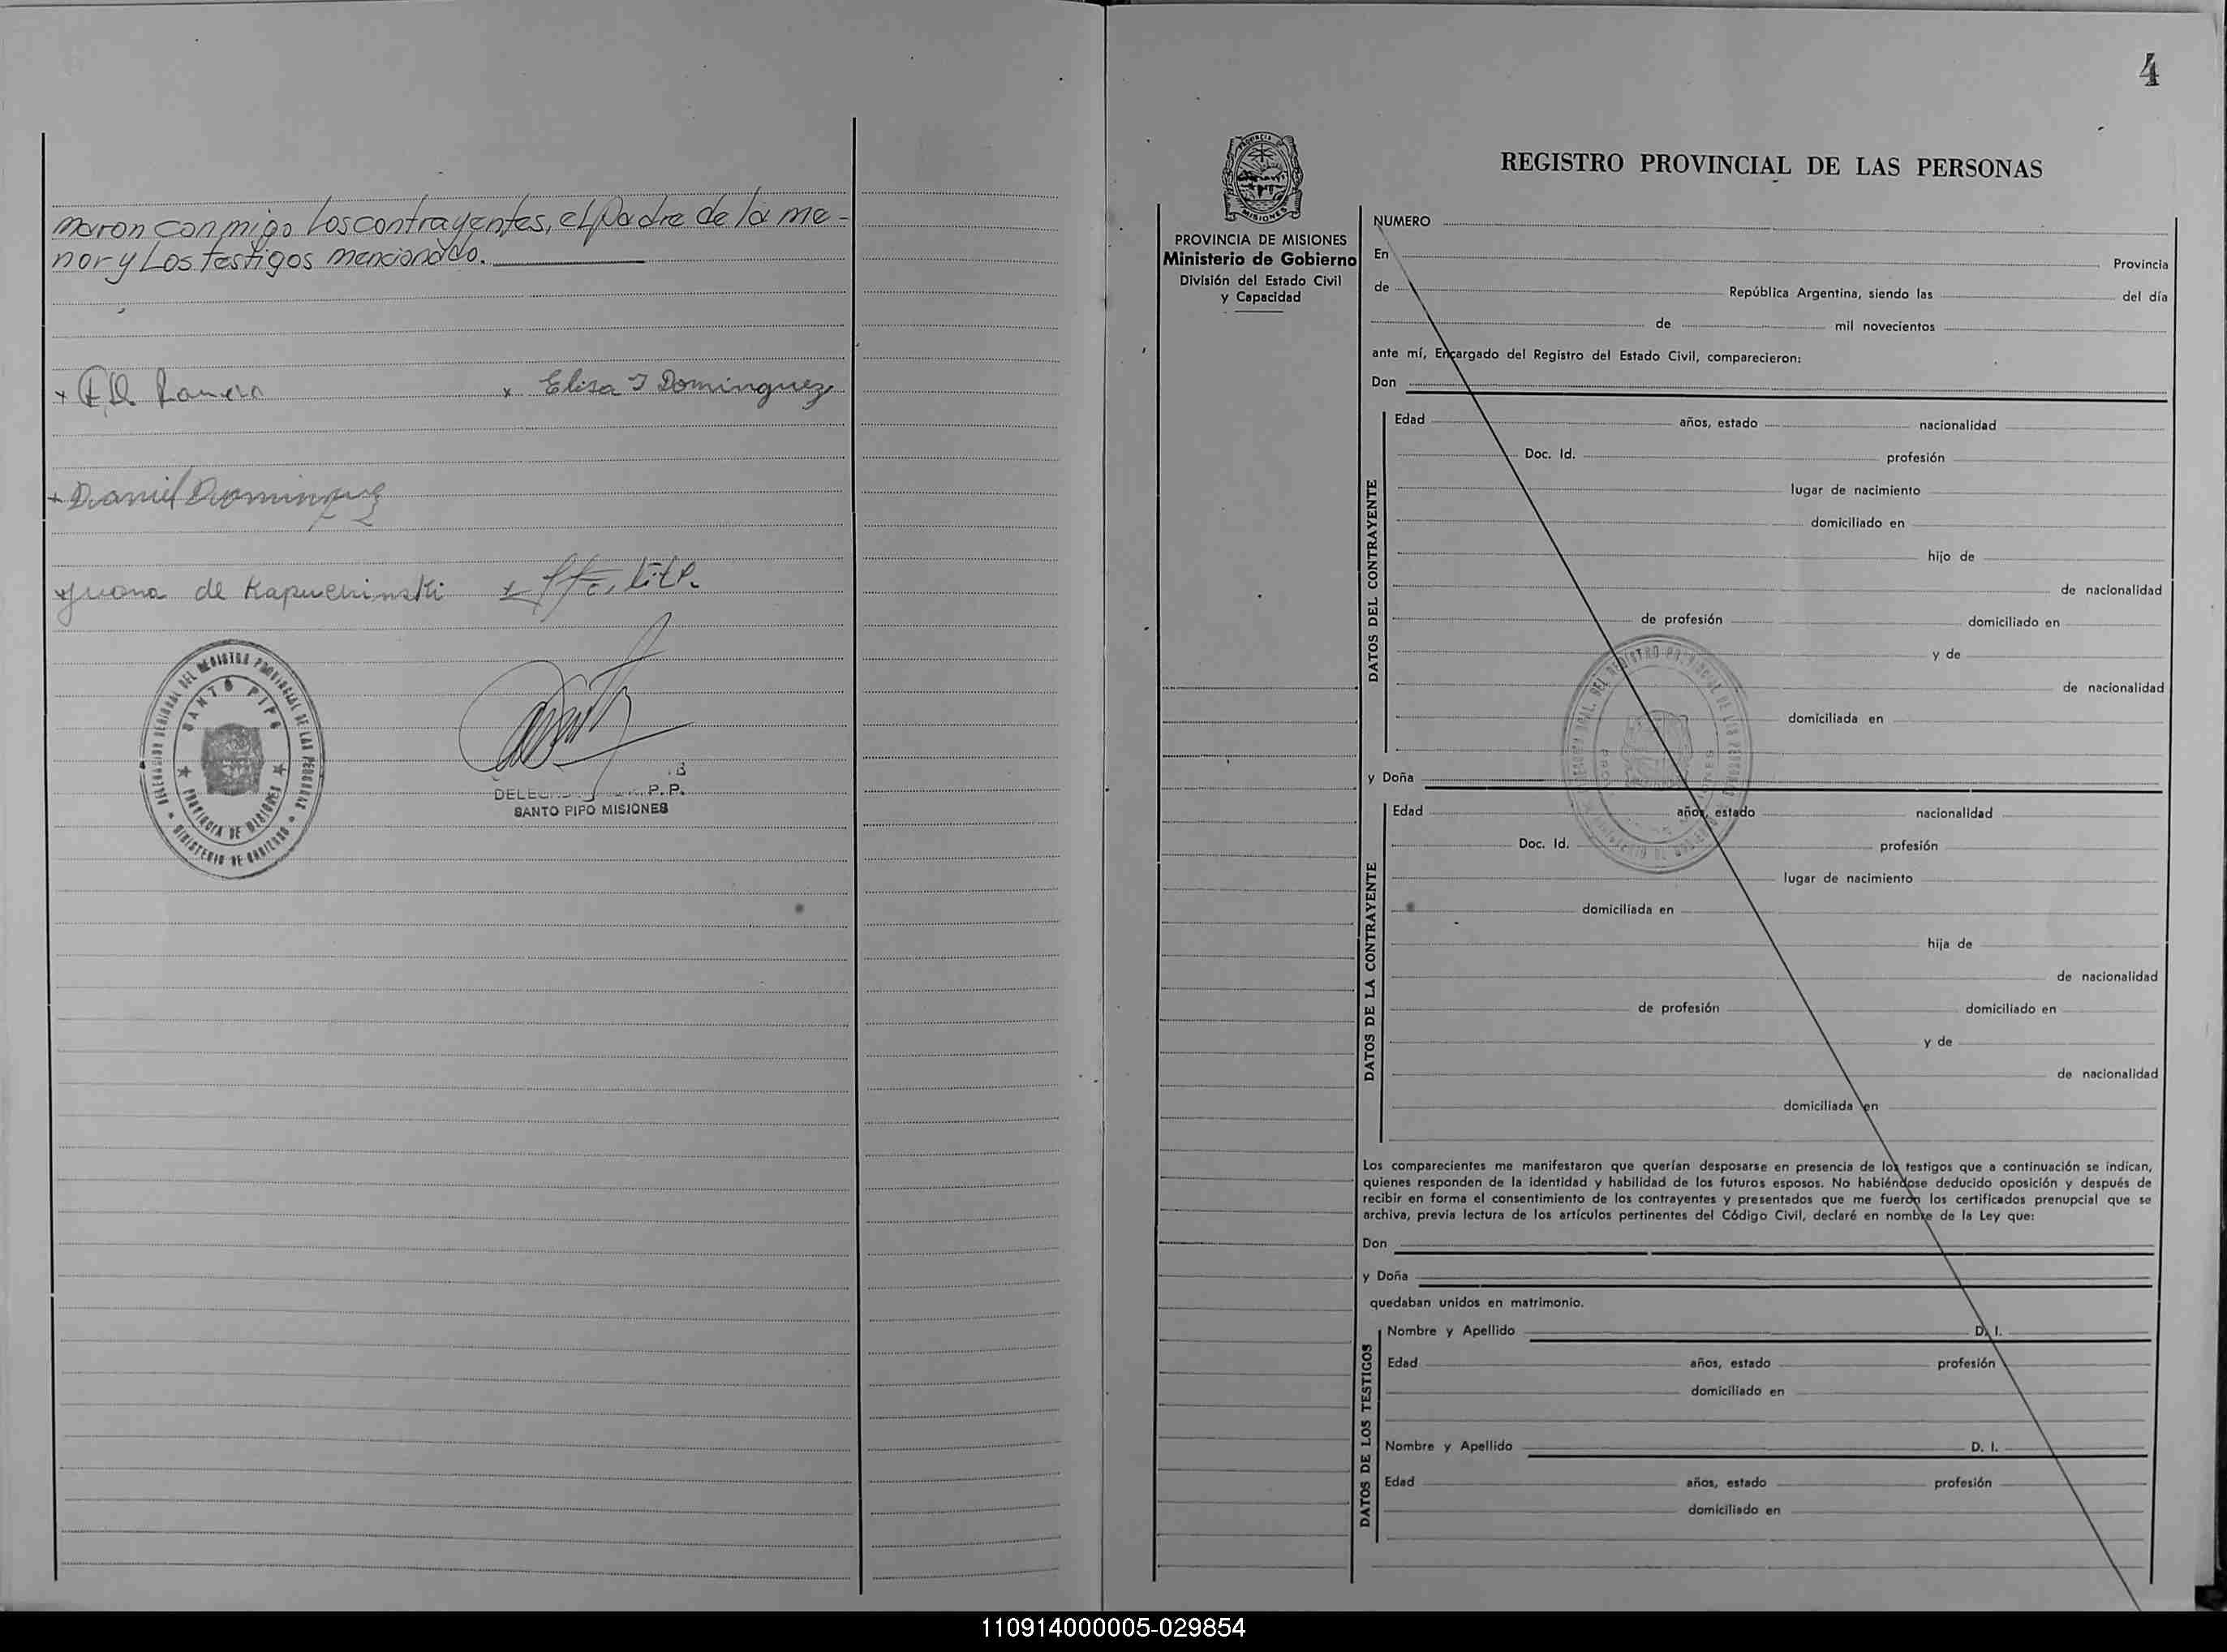 maron conmigo los contrayentes, el padre de la me-
nor y Los testigos mencionado.
x Elisa I Dominguez
+ Daniel Dominguez
x Juana de Kapuchinski
DELEGACION REGIONAL DEL REGISTRO PROVINCIAL DE LAS PERSONAS
SANTO PIPO
PROVINCIA DE MISIONES
MINISTERIO DE GOBIERNO
P.P.
SANTO PIPO MISIONES
4
PROVINCIA
MISIONES
REGISTRO PROVINCIAL DE LAS PERSONAS
PROVINCIA DE MISIONES
Ministerio de Gobierno
División del Estado Civil
y Capacidad
NUMERO
En Provincia
de República Argentina, siendo las del día
de mil novecientos
ante mí, Encargado del Registro del Estado Civil, comparecieron:
Don
DATOS DEL CONTRAYENTE
Edad años, estado nacionalidad
Doc. Id. profesión
lugar de nacimiento
domiciliado en
hijo de
de nacionalidad
de profesión domiciliado en
y de
de nacionalidad
domiciliada en
y Doña
DATOS DE LA CONTRAYENTE
Edad años, estado nacionalidad
Doc. Id. profesión
lugar de nacimiento
domiciliada en
hija de
de nacionalidad
de profesión domiciliado en
y de
de nacionalidad
domiciliada en
Los comparecientes me manifestaron que querían desposarse en presencia de los testigos que a continuación se indican,
quienes responden de la identidad y habilidad de los futuros esposos. No habiéndose deducido oposición y después de
recibir en forma el consentimiento de los contrayentes y presentados que me fueron los certificados prenupcial que se
archiva, previa lectura de los artículos pertinentes del Código Civil, declaré en nombre de la Ley que:
Don
y Doña
quedaban unidos en matrimonio.
DATOS DE LOS TESTIGOS
Nombre y Apellido D. I.
Edad años, estado profesión
domiciliado en
Nombre y Apellido D. I.
Edad años, estado profesión
domiciliado en
110914000005-029854